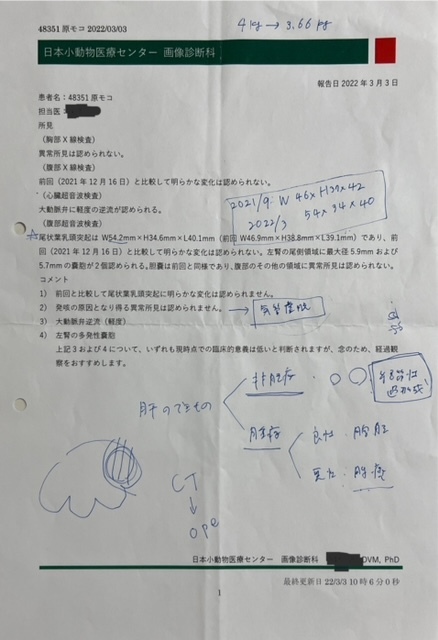 48351 原モコ 2022/03/03
4kg → 3.66kg
日本小動物医療センター 画像診断科
報告日 2022 年 3 月 3 日
患者名：48351 原モコ
担当医：
所見
（胸部 X 線検査）
異常所見は認められない。
（腹部 X 線検査）
前回（2021 年 12 月 16 日）と比較して明らかな変化は認められない。
（心臓超音波検査）
大動脈弁に軽度の逆流が認められる。
（腹部超音波検査）
2021/9: W 46×H39×42
2022/3 54×34×40
尾状葉乳頭突起は W54.2mm×H34.6mm×L40.1mm（前回 W46.9mm×H38.8mm×L39.1mm）であり、前
回（2021 年 12 月 16 日）と比較して明らかな変化は認められない。左腎の尾側領域に最大径 5.9mm および
5.7mm の嚢胞が 2 個認められる。胆嚢は前回と同様であり、腹部のその他の領域に異常所見は認められない。
コメント
1) 前回と比較して尾状葉乳頭突起に明らかな変化は認められません。
2) 発咳の原因となり得る異常所見は認められません。
→ 気管虚脱
3) 大動脈弁逆流（軽度）
4) 左腎の多発性嚢胞
上記 3 および 4 について、いずれも現時点での臨床的意義は低いと判断されますが、念のため、経過観
察をおすすめします。
肝のできもの
非腫瘍
結節性
過形成
腫瘍
良性
悪性
CT
↓
ope
日本小動物医療センター 画像診断科
DVM, PhD
最終更新日 22/3/3 10 時 6 分 0 秒
1